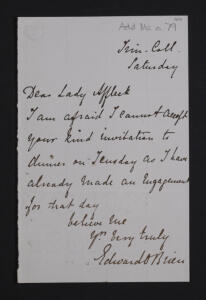 Add Ms a 79
Trin. Coll.
Saturday
Dear Lady Affleck
I am afraid I cannot accept
your kind invitation to
dinner on Tuesday as I have
already made an engagement
for that day
believe me
Yrs very truly
Edward O'Brien